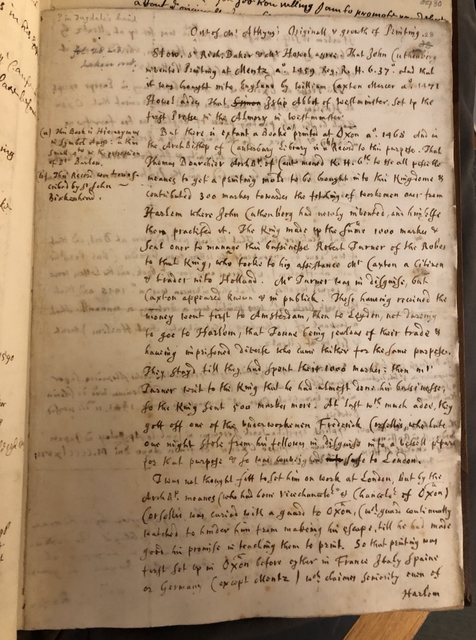 Out of Mr. Atkyns Originall & growth of Printing
Stow. Sr. Rich. Baker & Mr. Howel agree: That John Cuthenberg
invented Printing at Mentz ao. 1459 Reg. R. H. 6. 37. And that
it was brought into England by William Caxton Mercer ao. 1471
Howel adds That Islip Abbot of Westminster set up the
first Presse in the Almory in Westminster.
But there is extant a Booke printed at Oxon ao. 1468 And in
the ArchBishop of Canterbury Library is a Record to this purpose. That
Thomas Bourchier ArchBp. of Cant. moved the H. 6th to use all possible
meanes to get a printing mold to be brought into this Kingdome &
contributed 300 markes towards the fetching of workemen over from
Harlem where John Cuthenberg had newly invented, and himselfe
then practised it. The King made up the summe 1000 markes &
sent over to manage this businesse Robert Turner of the Robes
to that King, who tooke to his assistance Mr. Caxton a Citizen
& trader into Holland. Mr. Turner was in disguise, but
Caxton appeared known & in publick. These having received the
money went first to Amsterdam, then to Leyden, not daring
to goe to Harlem, that Towne being jealous of their trade &
having imprisoned diverse who came thither for the same purpose.
They stayd till they had spent their 1000 markes; then Mr.
Turner writ to the King that he had almost done his businesse,
so the King sent 500 markes more. At last wth. much adoe, they
gott off one of the underworkemen Frederick Corsellis, who late
one night stole from his fellowes in disguise into a vessell
for that purpose & so was safe to London.
T was not thought fitt to set him on work at London, but by the
ArchBps. meanes (who had been Vicechancelr. & Chancelr. of Oxon)
Corsellis was caried with a guard to Oxon, (wch. guard continually
watched to hinder him from making his escape, till he had made
good his promise in teaching them to print. So that printing was
first set up in Oxon before eyther in France Italy Spaine
or Germany (except Mentz) wch. claimes seniority even of
Harlem
(a) This Book is Hieronymus
in Symbol. Apost. in
of Dr. Barlow.
(b) This Record was transcribed by Sr. John
Birkenhead.